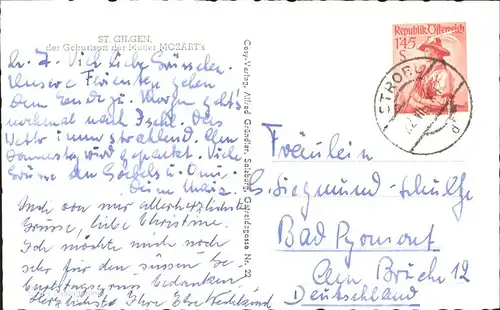 ST. GILGEN,
der Geburtsort der Mutter MOZART's
Viele liebe Grüsschen.
Unsere Ferienten gehen
dem Ende zu. Morgen geht's
nochmal nach Ischl. Das
Wetter immer strahlend. Am
Donnerstag wird gepackt. Viele
Grüsse an Göbels u. Omi.
Deine
Auch von mir allerherzlichste
Grüsse, liebe Christine.
Ich möchte mich noch
sehr für den süssen Ge-
burtstagsgruss bedanken.
Herzlichste Ihre
Cosy-Verlag, Alfred Gründler, Salzburg, Getreidegasse Nr. 22
Republik Österreich
1.45
S
STROBL
Fräulein
Ch. Siegmund-Schultze
Bad Pyrmont
Am Bruche 12
Deutschland